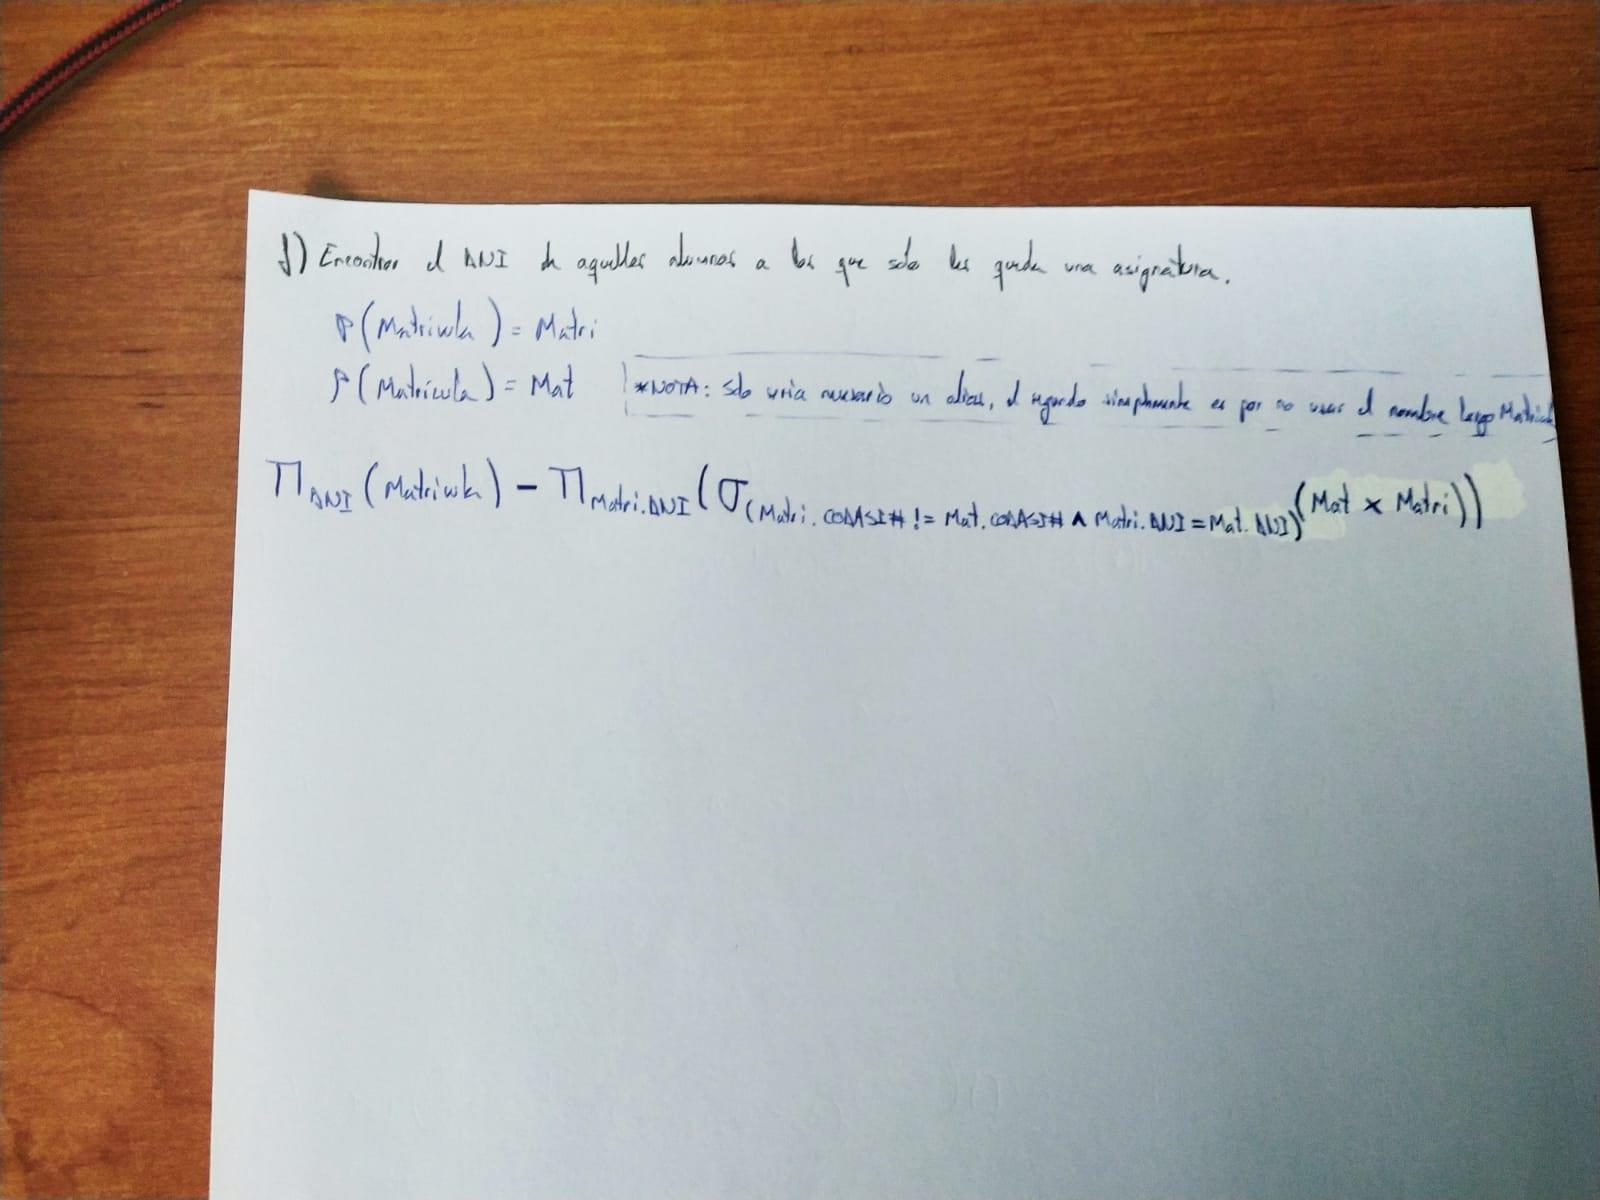 f) Encontrar el DNI de aquellos alumnos a los que solo les queda una asignatura.
ρ(Matricula) = Matri
ρ(Matricula) = Mat *NOTA: Solo sería necesario un alias, el segundo simplemente es por no usar el nombre largo Matricula
Π DNI (Matricula) - Π Matri.DNI (σ (Matri.CODASI# != Mat.CODASI# ∧ Matri.DNI = Mat.DNI) (Mat x Matri))